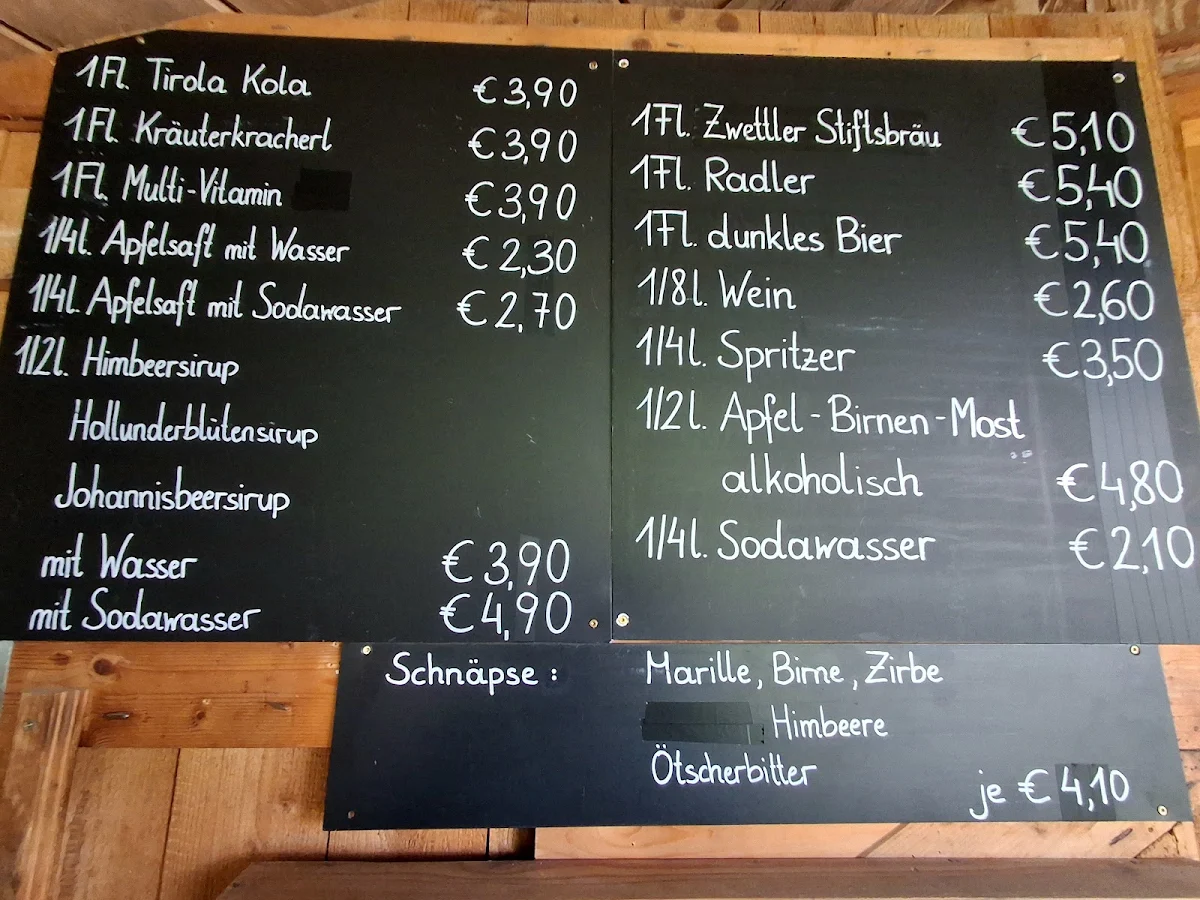 1 Fl. Tirola Kola € 3,90
1 Fl. Kräuterkracherl € 3,90
1 Fl. Multi-Vitamin € 3,90
1/4 l. Apfelsaft mit Wasser € 2,30
1/4 l. Apfelsaft mit Sodawasser € 2,70
1/2 l. Himbeersirup
Hollunderblütensirup
Johannisbeersirup
mit Wasser € 3,90
mit Sodawasser € 4,90
1 Fl. Zwettler Stiftsbräu € 5,10
1 Fl. Radler € 5,40
1 Fl. dunkles Bier € 5,40
1/8 l. Wein € 2,60
1/4 l. Spritzer € 3,50
1/2 l. Apfel-Birnen-Most
alkoholisch € 4,80
1/4 l. Sodawasser € 2,10
Schnäpse: Marille, Birne, Zirbe
Himbeere
Ötscherbitter
je € 4,10